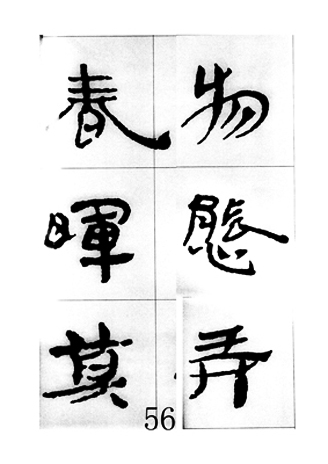 物態弄
春暉莫
56